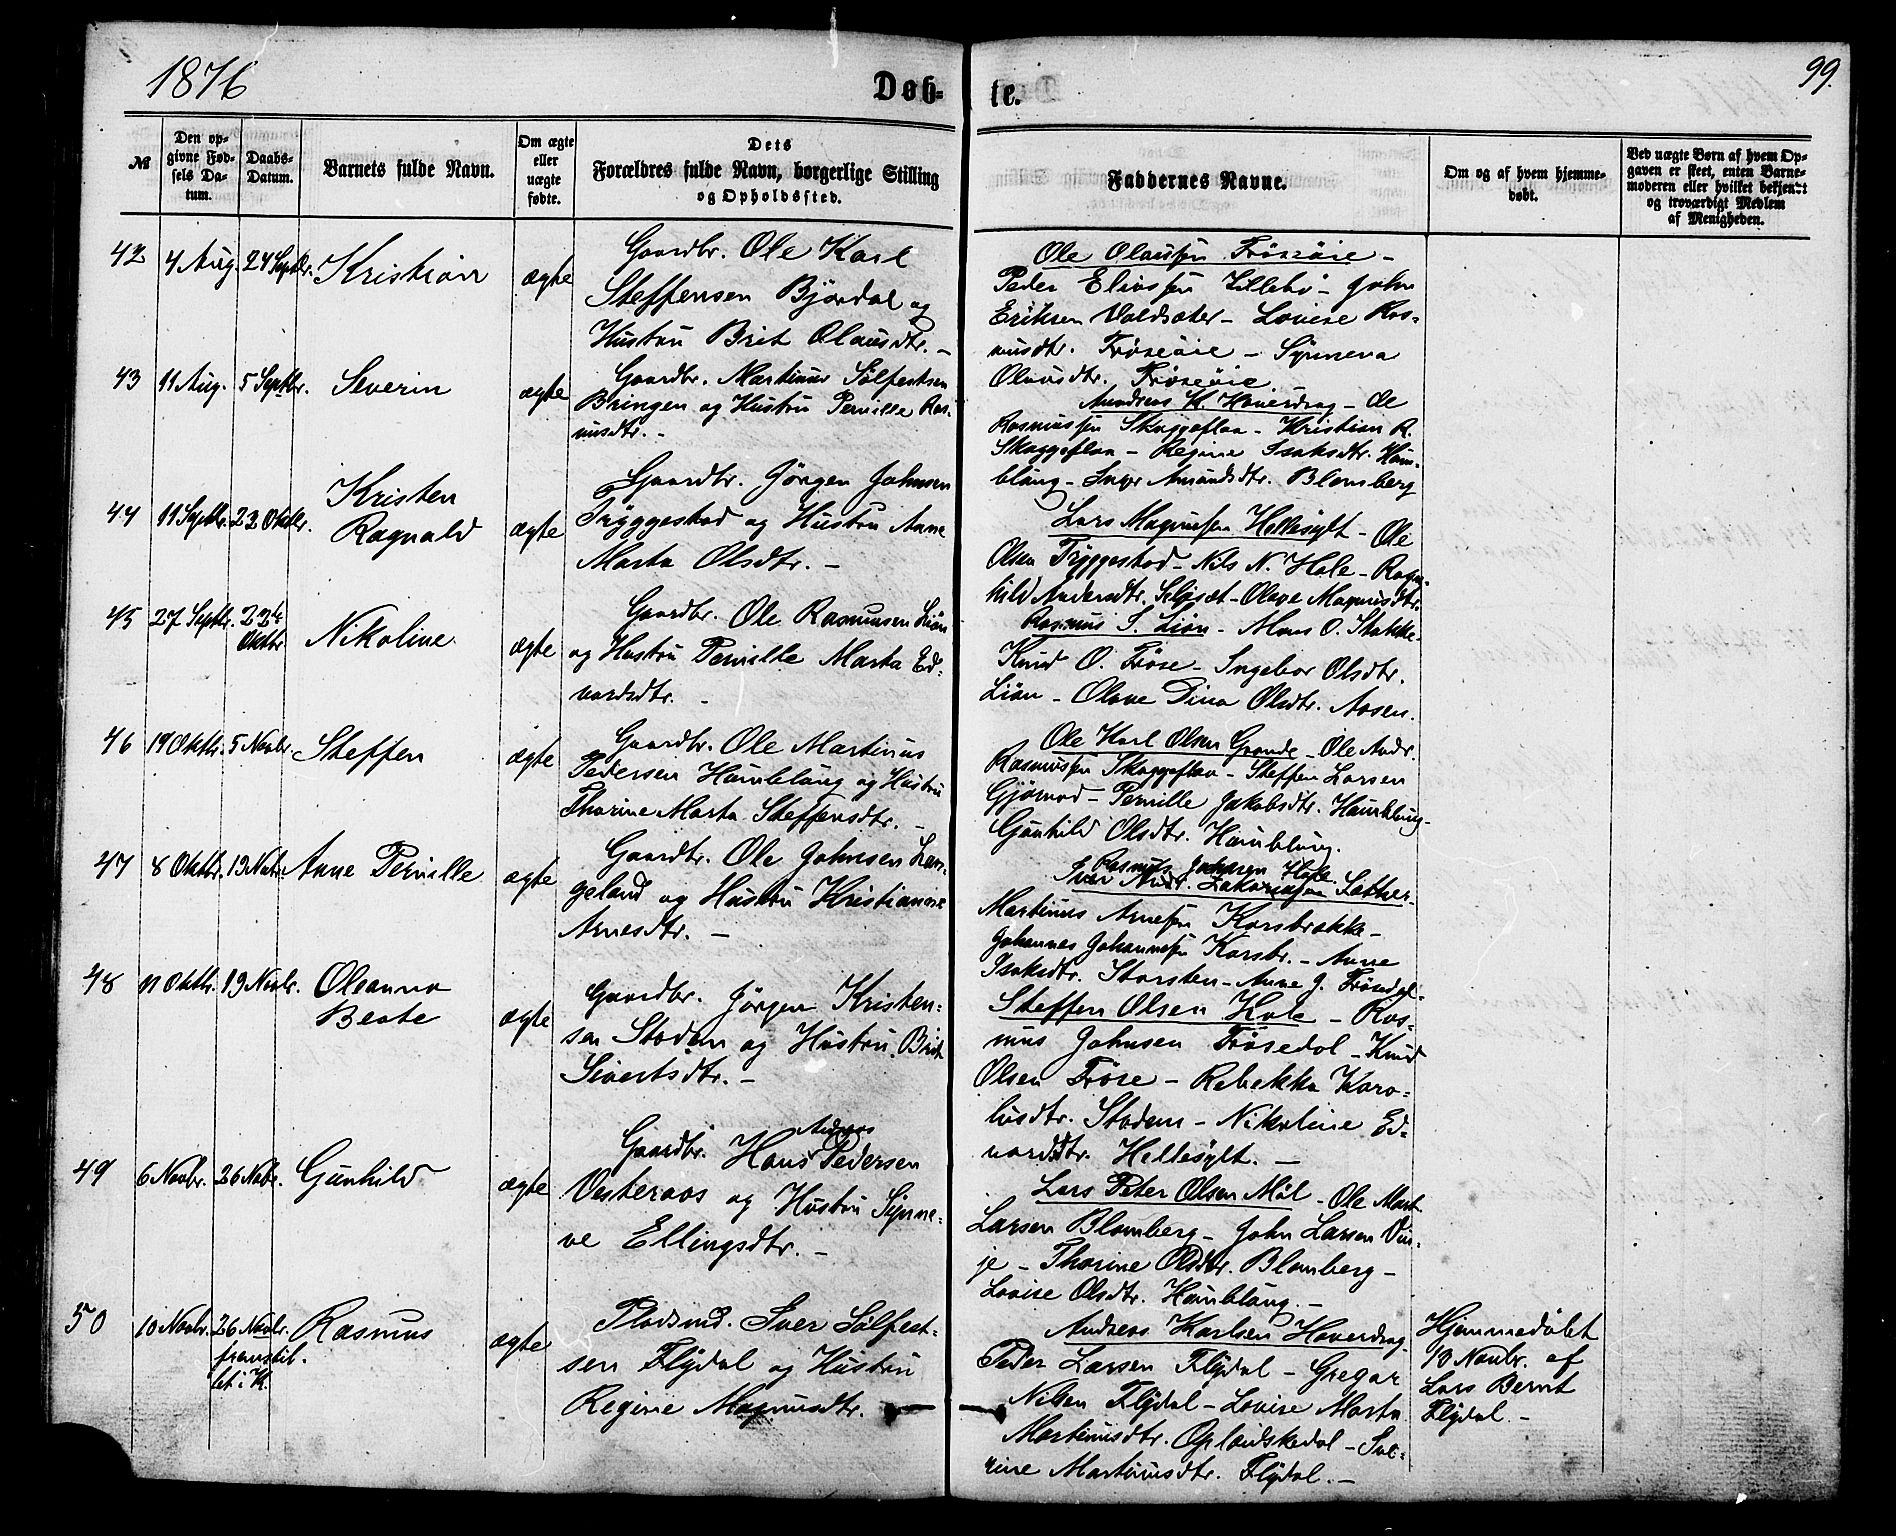 1876
Døb-
te.
99.
№
Den op-
givne Fød-
sels Da-
tum.
Daabs-
Datum.
Barnets fulde Navn.
Om ægte
eller
uægte
fødte.
Dets
Forældres fulde Navn, borgerlige Stilling
og Opholdssted.
Faddernes Navne.
Om og af hvem hjemme-
døbt.
Ved uægte Børn af hvem Op-
gaven er skeet, enten Barne-
moderen eller hvilket bekjendt
og troværdigt Medlem
af Menigheden.
42
4 Aug.
24 Septbr.
Kristian
ægte
Gaardbr. Ole Karl
Steffensen Bjørdal og
Hustru Brit Olausdtr. -
Ole Olausen Frøseøie -
Peder Eliassen Lillebø - John
Eriksen Voldsæter - Lovise Ras-
musdtr. Frøseøie - Synneva
Olausdtr. Frøseøie.
43
11 Aug.
5 Septbr.
Severin
ægte
Gaardbr. Martinus Sølfestsen
Bringen og Hustru Pernille Ras-
musdtr. -
Andreas K. Haverdrag - Ole
Rasmussen Skaggeflaa - Kristian R.
Skaggeflaa - Regine Isaksdtr. Haus-
blaug - Inger Amundsdtr. Blomberg
44
11 Septbr.
22 Oktbr.
Kristen
Ragnald
ægte
Gaardbr. Jørgen Johnsen
Tryggestad og Hustru Anne
Marta Olsdtr. -
Lars Magnussen Hellesylt - Ole
Olsen Tryggestad - Nils N. Hole - Ragn-
hild Andersdtr. Kløset - Olave Magnusdtr.
45
27 Septbr.
22de
Oktbr.
Nikoline
ægte
Gaardbr. Ole Rasmussen Liøn
og Hustru Pernille Marta Ed-
vardsdtr. -
Rasmus S. Liøn - Mons O. Stakke -
Knud O. Frøse - Ingebor Olsdtr.
Liøn - Olave Dina Olsdtr. Aasen.
46
19 Oktbr.
5 Novbr.
Steffen
ægte
Gaardbr. Ole Martinus
Pedersen Hausblaug og Hustru
Thorine Marta Steffensdtr. -
Ole Karl Olsen Grande - Ole Andr.
Rasmussen Skaggeflaa - Steffen Larsen
Gjørnad - Pernille Jakobsdtr. Hausblaug -
Gunhild Olsdtr. Hausblaug.
47
8 Oktbr.
19 Novbr.
Anne Pernille
ægte
Gaardbr. Ole Johnsen Lan-
geland og Hustru Kristianne
Arnesdtr. -
Rasmus Johnsen Hole
Iver Andr. Zakariassen Sætker -
Martinus Arnesen Korsbrække -
Johannes Johannesen Korsbr. - Anne
Isaksdtr. Storsten - Anne J. Frøsedal -
48
11 Oktbr.
19 Novbr.
Olsanna
Beate
ægte
Gaardbr. Jørgen Kristen-
sen Stadem og Hustru Brit
Sivertsdtr. -
Steffen Olsen Hole - Ras-
mus Johnsen Frøsedal - Knud
Olsen Frøse - Rebekka Karo-
lusdtr. Stadem - Nikoline Ed-
vardsdtr. Hellesylt. -
49
6 Novbr.
26 Novbr.
Gunhild
ægte
Andreas
Gaardbr. Hans Pedersen
Vesteraas og Hustru Synne-
ve Ellingsdtr. -
Lars Peter Olsen Møl - Ole Mart.
Larsen Blomberg - John Larsen Vin-
je - Thorine Olsdtr. Blomberg -
Lovise Olsdtr. Hausblaug. -
50
10 Novbr.
26 Novbr.
fremstil-
let i K.
Rasmus
ægte
Pladsmd. Iver Sølfest-
sen Flydal og Hustru
Regine Magnusdtr.
Andreas Karlsen Haverdrag.
Peder Larsen Flydal - Gregar
Nilsen Flydal - Lovise Marta
Martinusdtr. Oplandskedal - Se-
rine Martinusdtr. Flydal. -
Hjemmedøbt
13 Novbr. af
Lars Bernt
Flydal. -